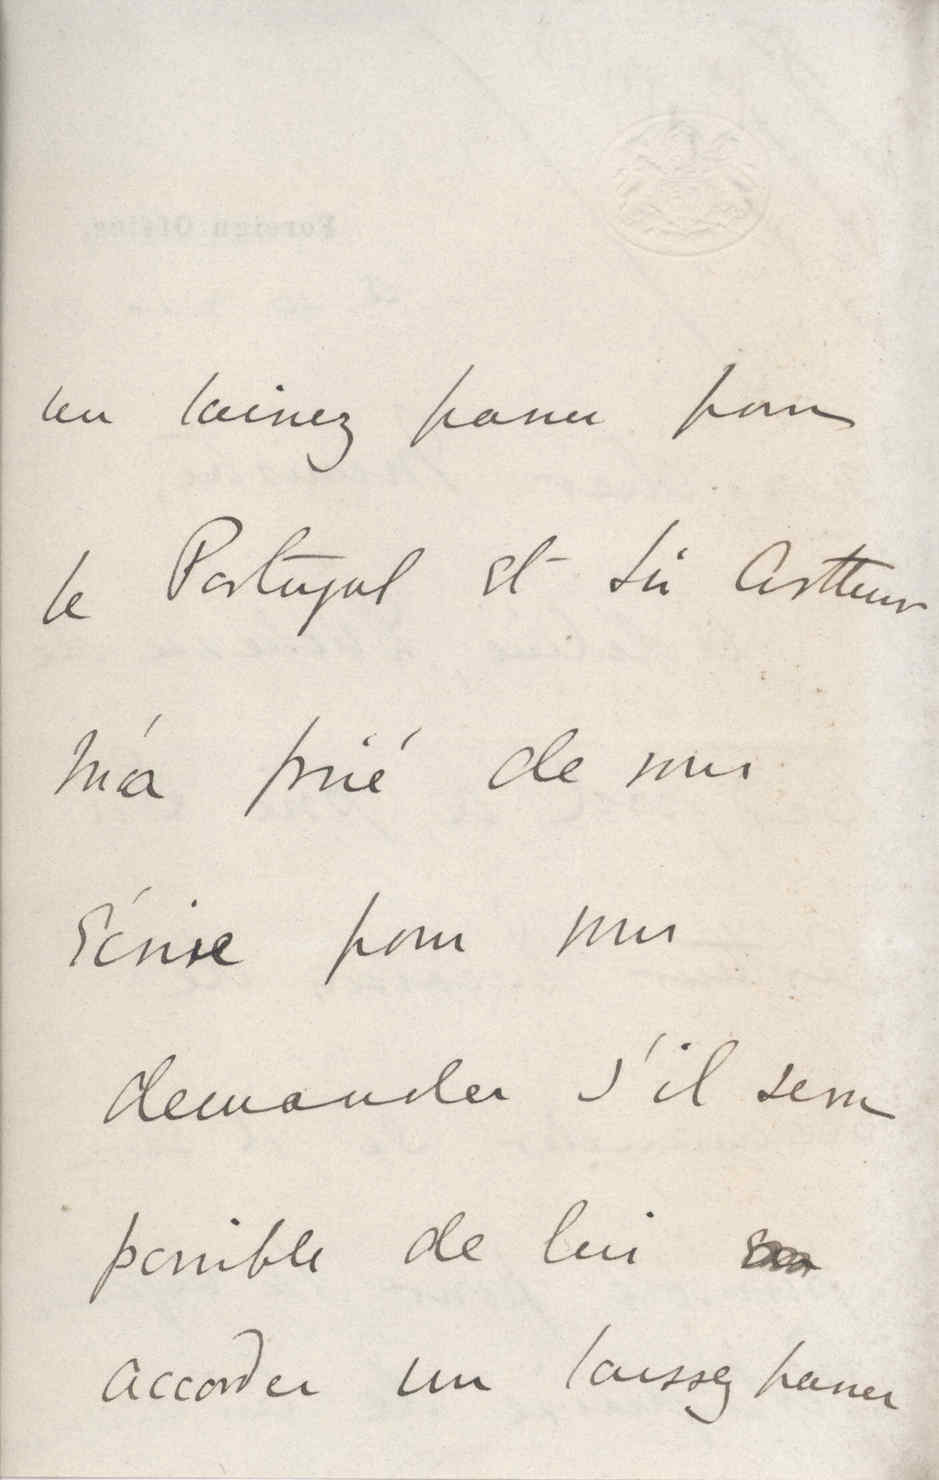 un laissez passer pour
le Portugal et Sir Arthur
m'a prié de vous
écrire pour vous
demander s'il sera
possible de lui
accorder un laissez passer
Foreign Office,